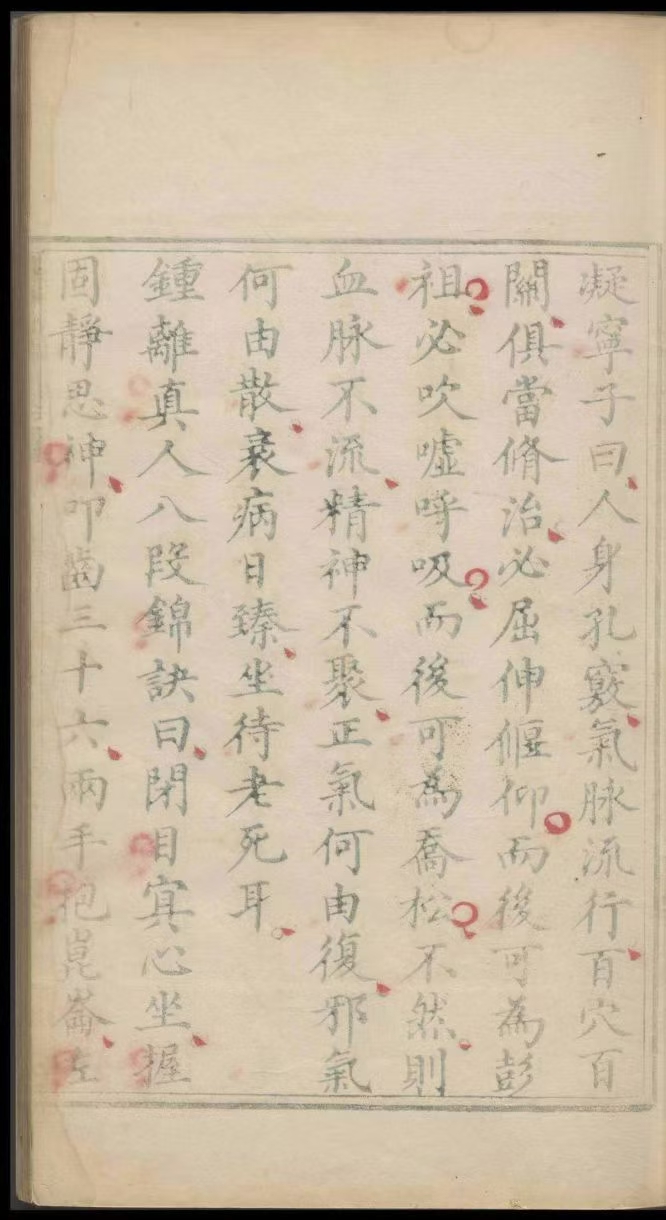 凝寧子曰人身孔竅氣脉流行百穴百
關俱當脩治必屈伸偃仰而後可為彭
祖必吹噓呼吸而後可為喬松不然則
血脉不流精神不聚正氣何由復邪氣
何由散衰病日臻坐待老死耳
鍾離真人八段錦訣曰閉目冥心坐握
固靜思神叩齒三十六兩手抱崑崙左